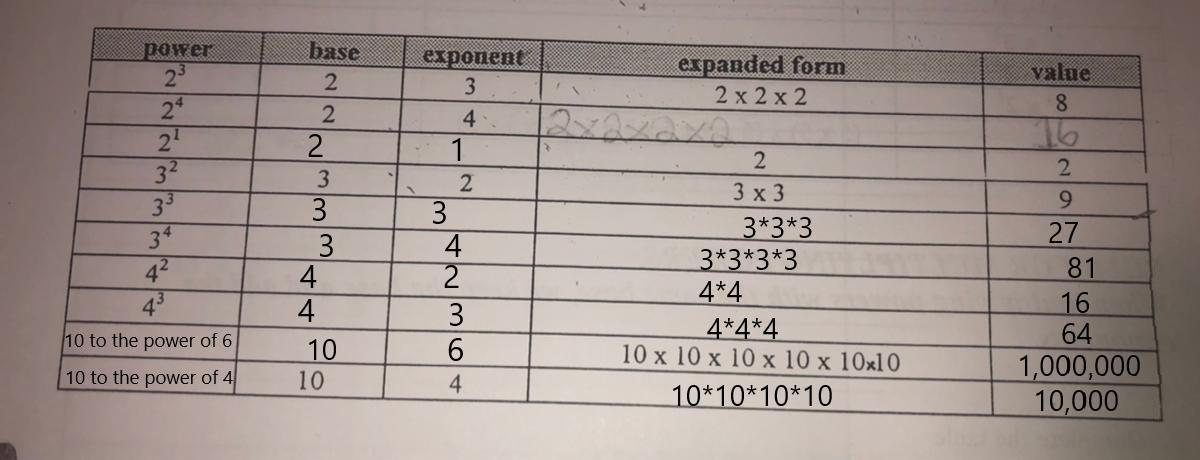 power base exponent expanded form value
2³ 2 3 2 x 2 x 2 8
2⁴ 2 4 2x2x2x2 16
2¹ 2 1 2 2
3² 3 2 3 x 3 9
3³ 3 3 3*3*3 27
3⁴ 3 4 3*3*3*3 81
4² 4 2 4*4 16
4³ 4 3 4*4*4 64
10 to the power of 6 10 6 10 x 10 x 10 x 10 x 10x10 1,000,000
10 to the power of 4 10 4 10*10*10*10 10,000